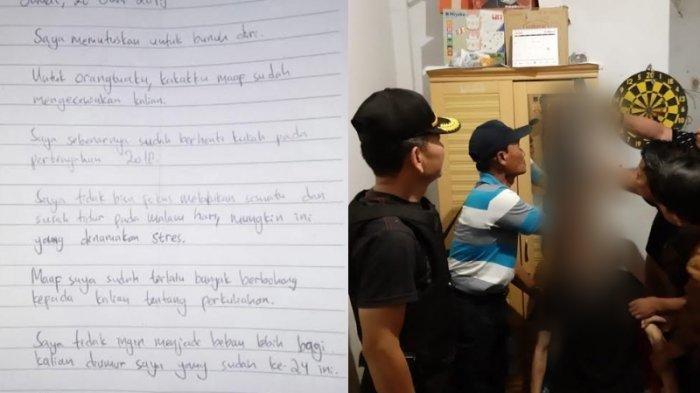 Saya memutuskan untuk bunuh diri.
Untuk orangtuaku, kakakku maap sudah
mengecewakan kalian.
Saya sebenarnya sudah berhenti kuliah pada
pertengahan 2018.
Saya tidak bisa fokus melakukan sesuatu dan
susah tidur pada malam hari, mungkin ini
yang dinamakan stres.
Maap saya sudah terlalu banyak berbohong
kepada kalian tentang perkuliahan.
Saya tidak ingin menjadi beban lebih bagi
kalian diumur saya yang sudah ke-24 ini.